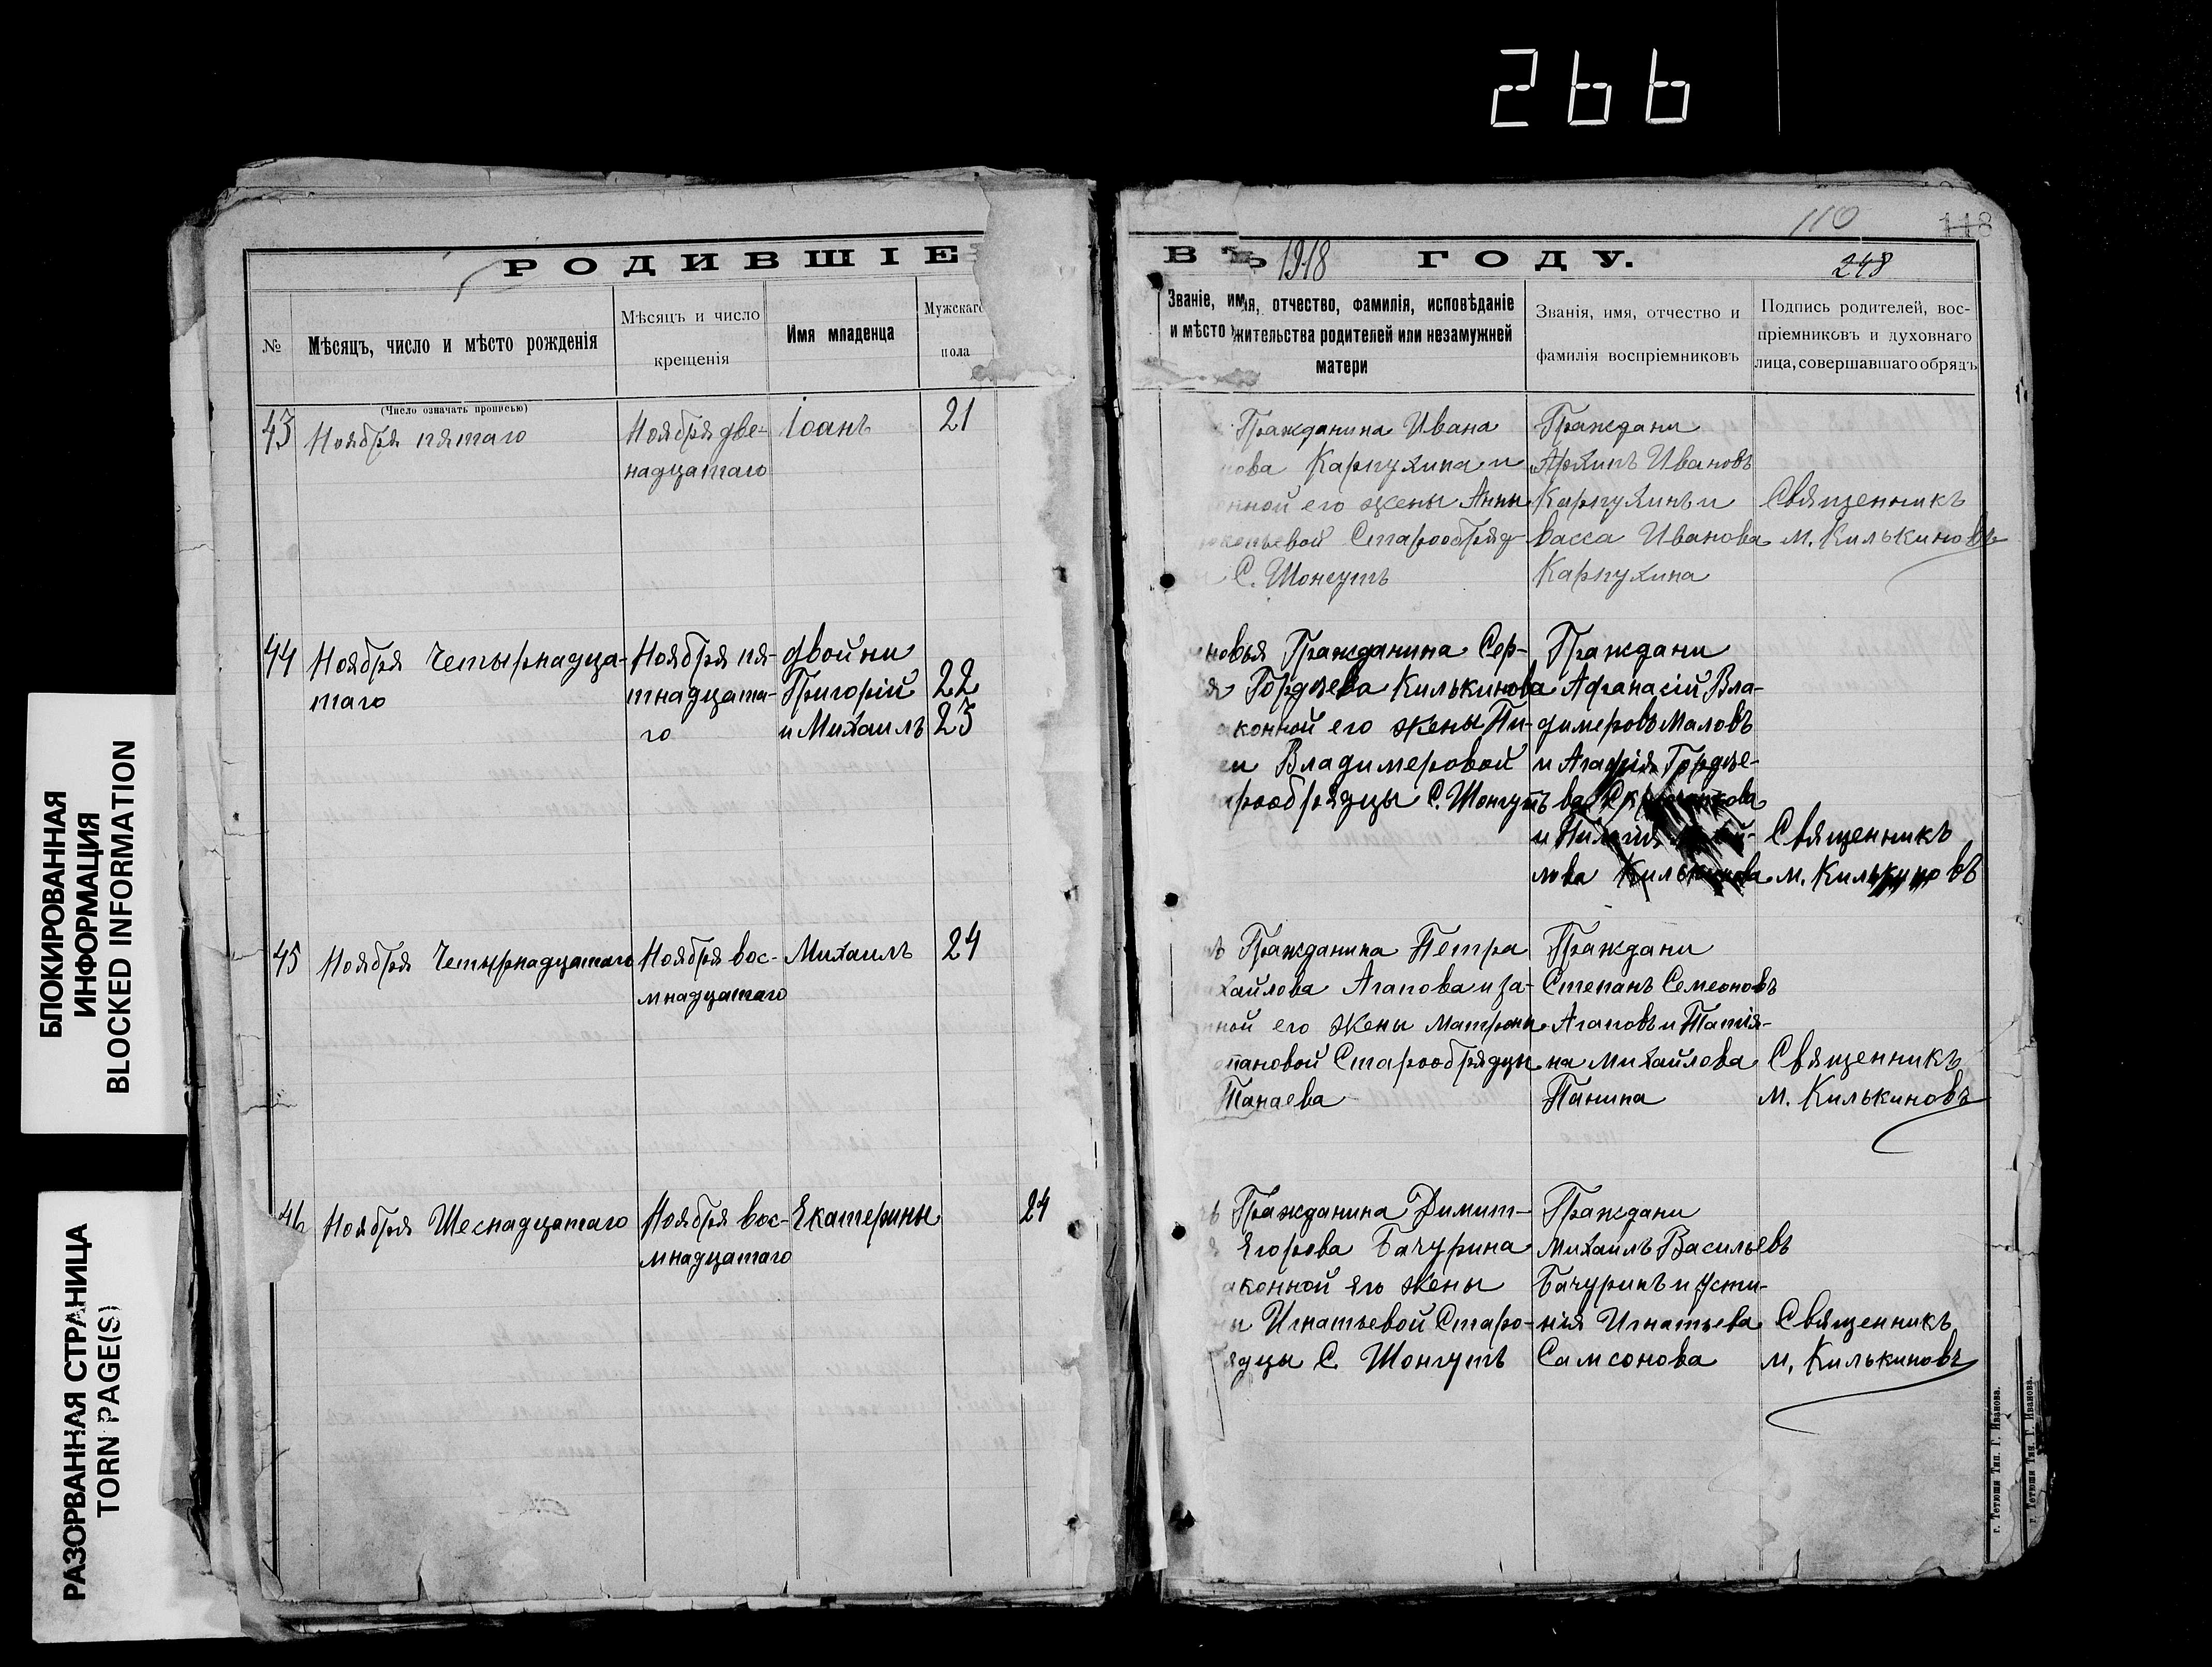 266
110
118
РОДИВШІЕ
ВЪ 1918 ГОДУ.
248
№
Мѣсяцъ, число и мѣсто рожденія
Мѣсяцъ и число
крещенія
Имя младенца
Мужскаго
пола
Званіе, имя, отчество, фамилія, исповѣданіе
и мѣсто жительства родителей или незамужней
матери
Званія, имя, отчество и
фамилія воспріемниковъ
Подпись родителей, вос-
пріемниковъ и духовнаго
лица, совершавшаго обрядъ
(Число означать прописью)
43
Ноября пятаго
Ноября две-
надцатаго
Іоанъ
21
Гражданина Ивана
нова Карпухина и
нной его жены Анны
Старообряд-
С. Шонгутъ
Граждани
Архипъ Ивановъ
Карпухинъ и
Васса Иванова
Карпухина
Священникъ
М. Килькиновъ
44
Ноября Четырнадца-
таго
Ноября пя-
тнадцата-
го
двойни
Григорій
и Михаилъ
22
23
новья Гражданина Сер-
я Гордѣева Килькинова
аконной его жены Пи-
Владимеровой
рообрядцы С. Шонгутъ
Граждани
Афанасій Вла-
димеровъ Маловъ
и Агафія Гордѣе-
ва
лова Килькинова
Священникъ
М. Килькиновъ
45
Ноября Четырнадцатаго
Ноября вос-
мнадцатаго
Михаилъ
24
ъ Гражданина Петра
хайлова Агапова и за-
нной его жены Матроны
пановой Старообрядцы
Танаева
Граждани
Степанъ Семеоновъ
Агаповъ и Татія-
на Михайлова
Панина
Священникъ
М. Килькиновъ
46
Ноября Шеснадцатаго
Ноября вос-
мнадцатаго
Екатерины
24
ь Гражданина Димит-
я Егорова Бачурина
аконной его жены
и Игнатьевой Старо-
ядцы С. Шонгутъ
Граждани
Михаилъ Васильевъ
Бачуринъ и Усти-
нія Игнатьева
Самсонова
Священникъ
М. Килькиновъ
г. Тетюши Тип. Г. Иванова.
г. Тетюши Тип. Г. Иванова.
БЛОКИРОВАННАЯ
ИНФОРМАЦИЯ
BLOCKED INFORMATION
РАЗОРВАННАЯ СТРАНИЦА
TORN PAGE(S)